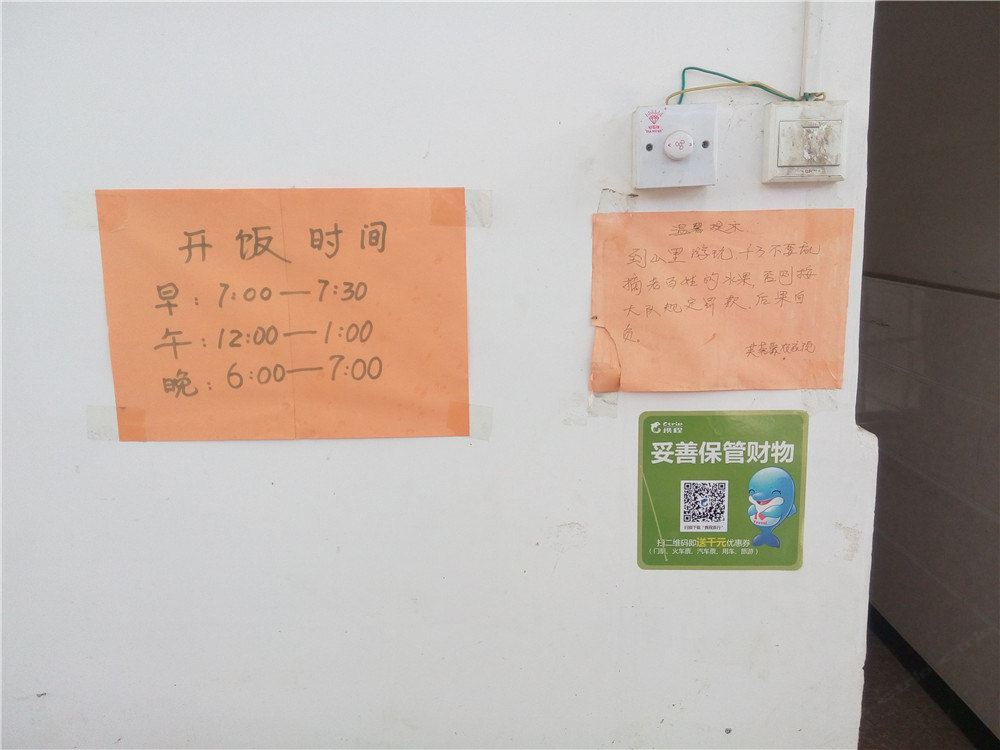 开饭时间
早：7:00—7:30
午：12:00—1:00
晚：6:00—7:00
温馨提示
到山里游玩，千万不要乱
摘老百姓的水果，否则按
大队规定罚款，后果自
负。
Ctrip
携程
妥善保管财物
扫二维码即送千元优惠券
（门票、火车票、汽车票、用车、旅游）